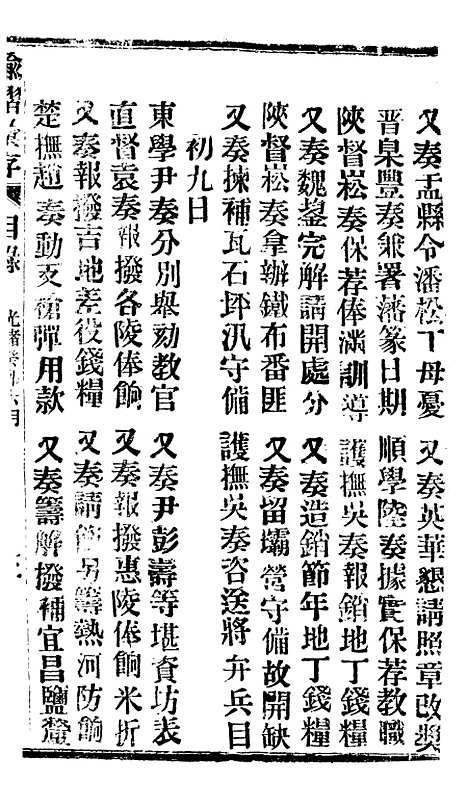 又奏盂縣令潘松丁母憂 又奏英華懇請照章改奬
晉臬豐奏兼署藩篆日期 順學陸奏據實保荐教職
陝督崧奏保荐俸滿訓導 護撫吳奏報銷地丁錢糧
又奏魏鋆完解請開處分 又奏造銷節年地丁錢糧
陝督崧奏拿辦鐵布番匪 又奏留壩營守備故開缺
又奏揀補瓦石坪汛守備 護撫吳奏咨送將弁兵目
初九日
東學尹奏分別舉劾教官 又奏尹彭壽等堪資坊表
直督袁奏報撥各陵俸餉 又奏報撥惠陵俸餉米折
又奏報撥吉地差役錢糧 又奏請飭另籌熱河防餉
楚撫趙奏動支槍彈用款 又奏籌解撥補宜昌鹽釐
諭摺彙存 目錄 光緒 月